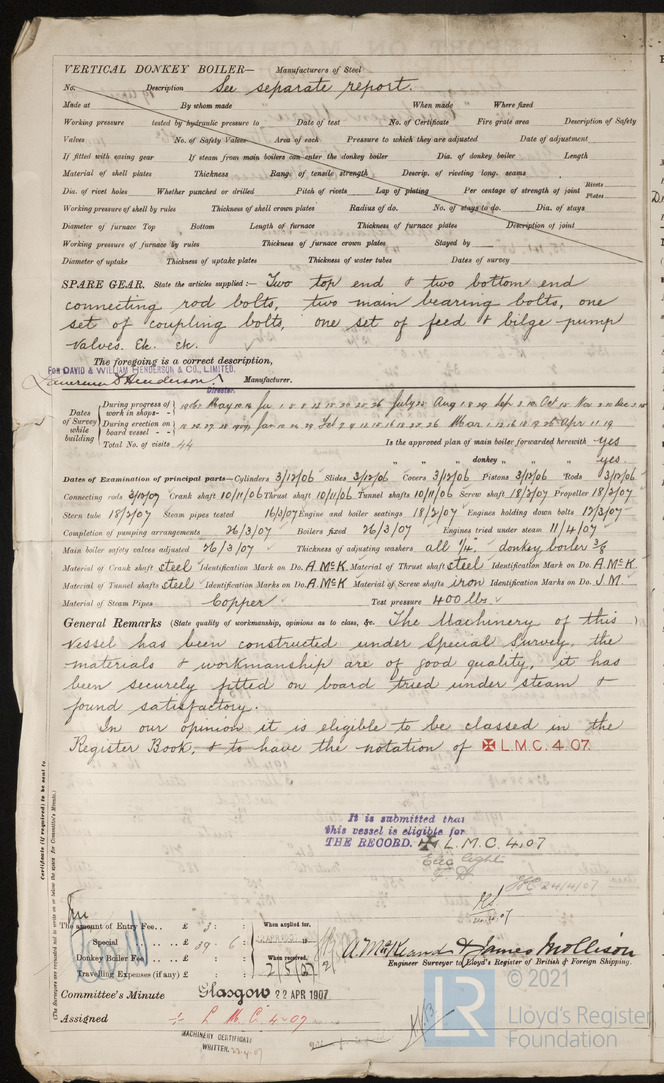 VERTICAL DONKEY BOILER— Manufacturers of Steel
No. Description See separate report.
Made at By whom made When made Where fixed
Working pressure tested by hydraulic pressure to Date of test No. of Certificate Fire grate area Description of Safety
Valves No. of Safety Valves Area of each Pressure to which they are adjusted Date of adjustment
If fitted with easing gear If steam from main boilers can enter the donkey boiler Dia. of donkey boiler Length
Material of shell plates Thickness Range of tensile strength Descrip. of riveting long. seams
Dia. of rivet holes Whether punched or drilled Pitch of rivets Lap of plating Per centage of strength of joint Rivets Plates
Working pressure of shell by rules Thickness of shell crown plates Radius of do. No. of stays to do. Dia. of stays
Diameter of furnace Top Bottom Length of furnace Thickness of furnace plates Description of joint
Working pressure of furnace by rules Thickness of furnace crown plates Stayed by
Diameter of uptake Thickness of uptake plates Thickness of water tubes Dates of survey
SPARE GEAR. State the articles supplied:— Two top end & two bottom end
connecting rod bolts, two main bearing bolts, one
set of coupling bolts, one set of feed & bilge pump
valves. Etc. etc.
The foregoing is a correct description,
FOR DAVID & WILLIAM HENDERSON & CO., LIMITED.
Henderson Director. Manufacturer.
Dates of Survey while building
During progress of work in shops-- 1906 May
During erection on board vessel-- Apr 11 19
Total No. of visits 44 Is the approved plan of main boiler forwarded herewith yes
" " donkey " " yes
Dates of Examination of principal parts—Cylinders 3/12/06 Slides 3/12/06 Covers 3/12/06 Pistons 3/12/06 Rods 3/12/06
Connecting rods 3/12/07 Crank shaft 10/11/06 Thrust shaft 10/11/06 Tunnel shafts 10/11/06 Screw shaft 18/2/07 Propeller 18/2/07
Stern tube 18/2/07 Steam pipes tested 16/3/07 Engine and boiler seatings 18/2/07 Engines holding down bolts 12/3/07
Completion of pumping arrangements 26/3/07 Boilers fixed 26/3/07 Engines tried under steam 11/4/07
Main boiler safety valves adjusted 26/3/07 Thickness of adjusting washers all 1/4. donkey boiler 3/8
Material of Crank shaft steel Identification Mark on Do. A.McK. Material of Thrust shaft steel Identification Mark on Do. A.McK.
Material of Tunnel shafts steel Identification Marks on Do. A.McK. Material of Screw shafts iron Identification Marks on Do. J.M.
Material of Steam Pipes Copper Test pressure 400 lbs
General Remarks (State quality of workmanship, opinions as to class, &c. The Machinery of this
vessel has been constructed under Special Survey, the
materials & workmanship are of good quality, it has
been securely fitted on board tried under steam &
found satisfactory.
In our opinion it is eligible to be classed in the
Register Book, & to have the notation of ✠ L.M.C. 4.07.
It is submitted that
this vessel is eligible for
THE RECORD. ✠ L.M.C. 4.07
Elec light
F.D.
24/4/07
Certificate (if required) to be sent to
(The Surveyors are requested not to write on or below the space for Committee's Minute.)
The amount of Entry Fee.. £ 3 : : When applied for,
Special .. £ 39 : 6 :
Donkey Boiler Fee .. £ : : When received,
Travelling Expenses (if any) £ : : 2/5/07
A. McKeand & James Mollison
Engineer Surveyor to Lloyd's Register of British & Foreign Shipping.
Committee's Minute Glasgow 22 APR 1907
Assigned + L.M.C. 4.07
MACHINERY CERTIFICATE
WRITTEN.
© 2021
LR Lloyd's Register
Foundation